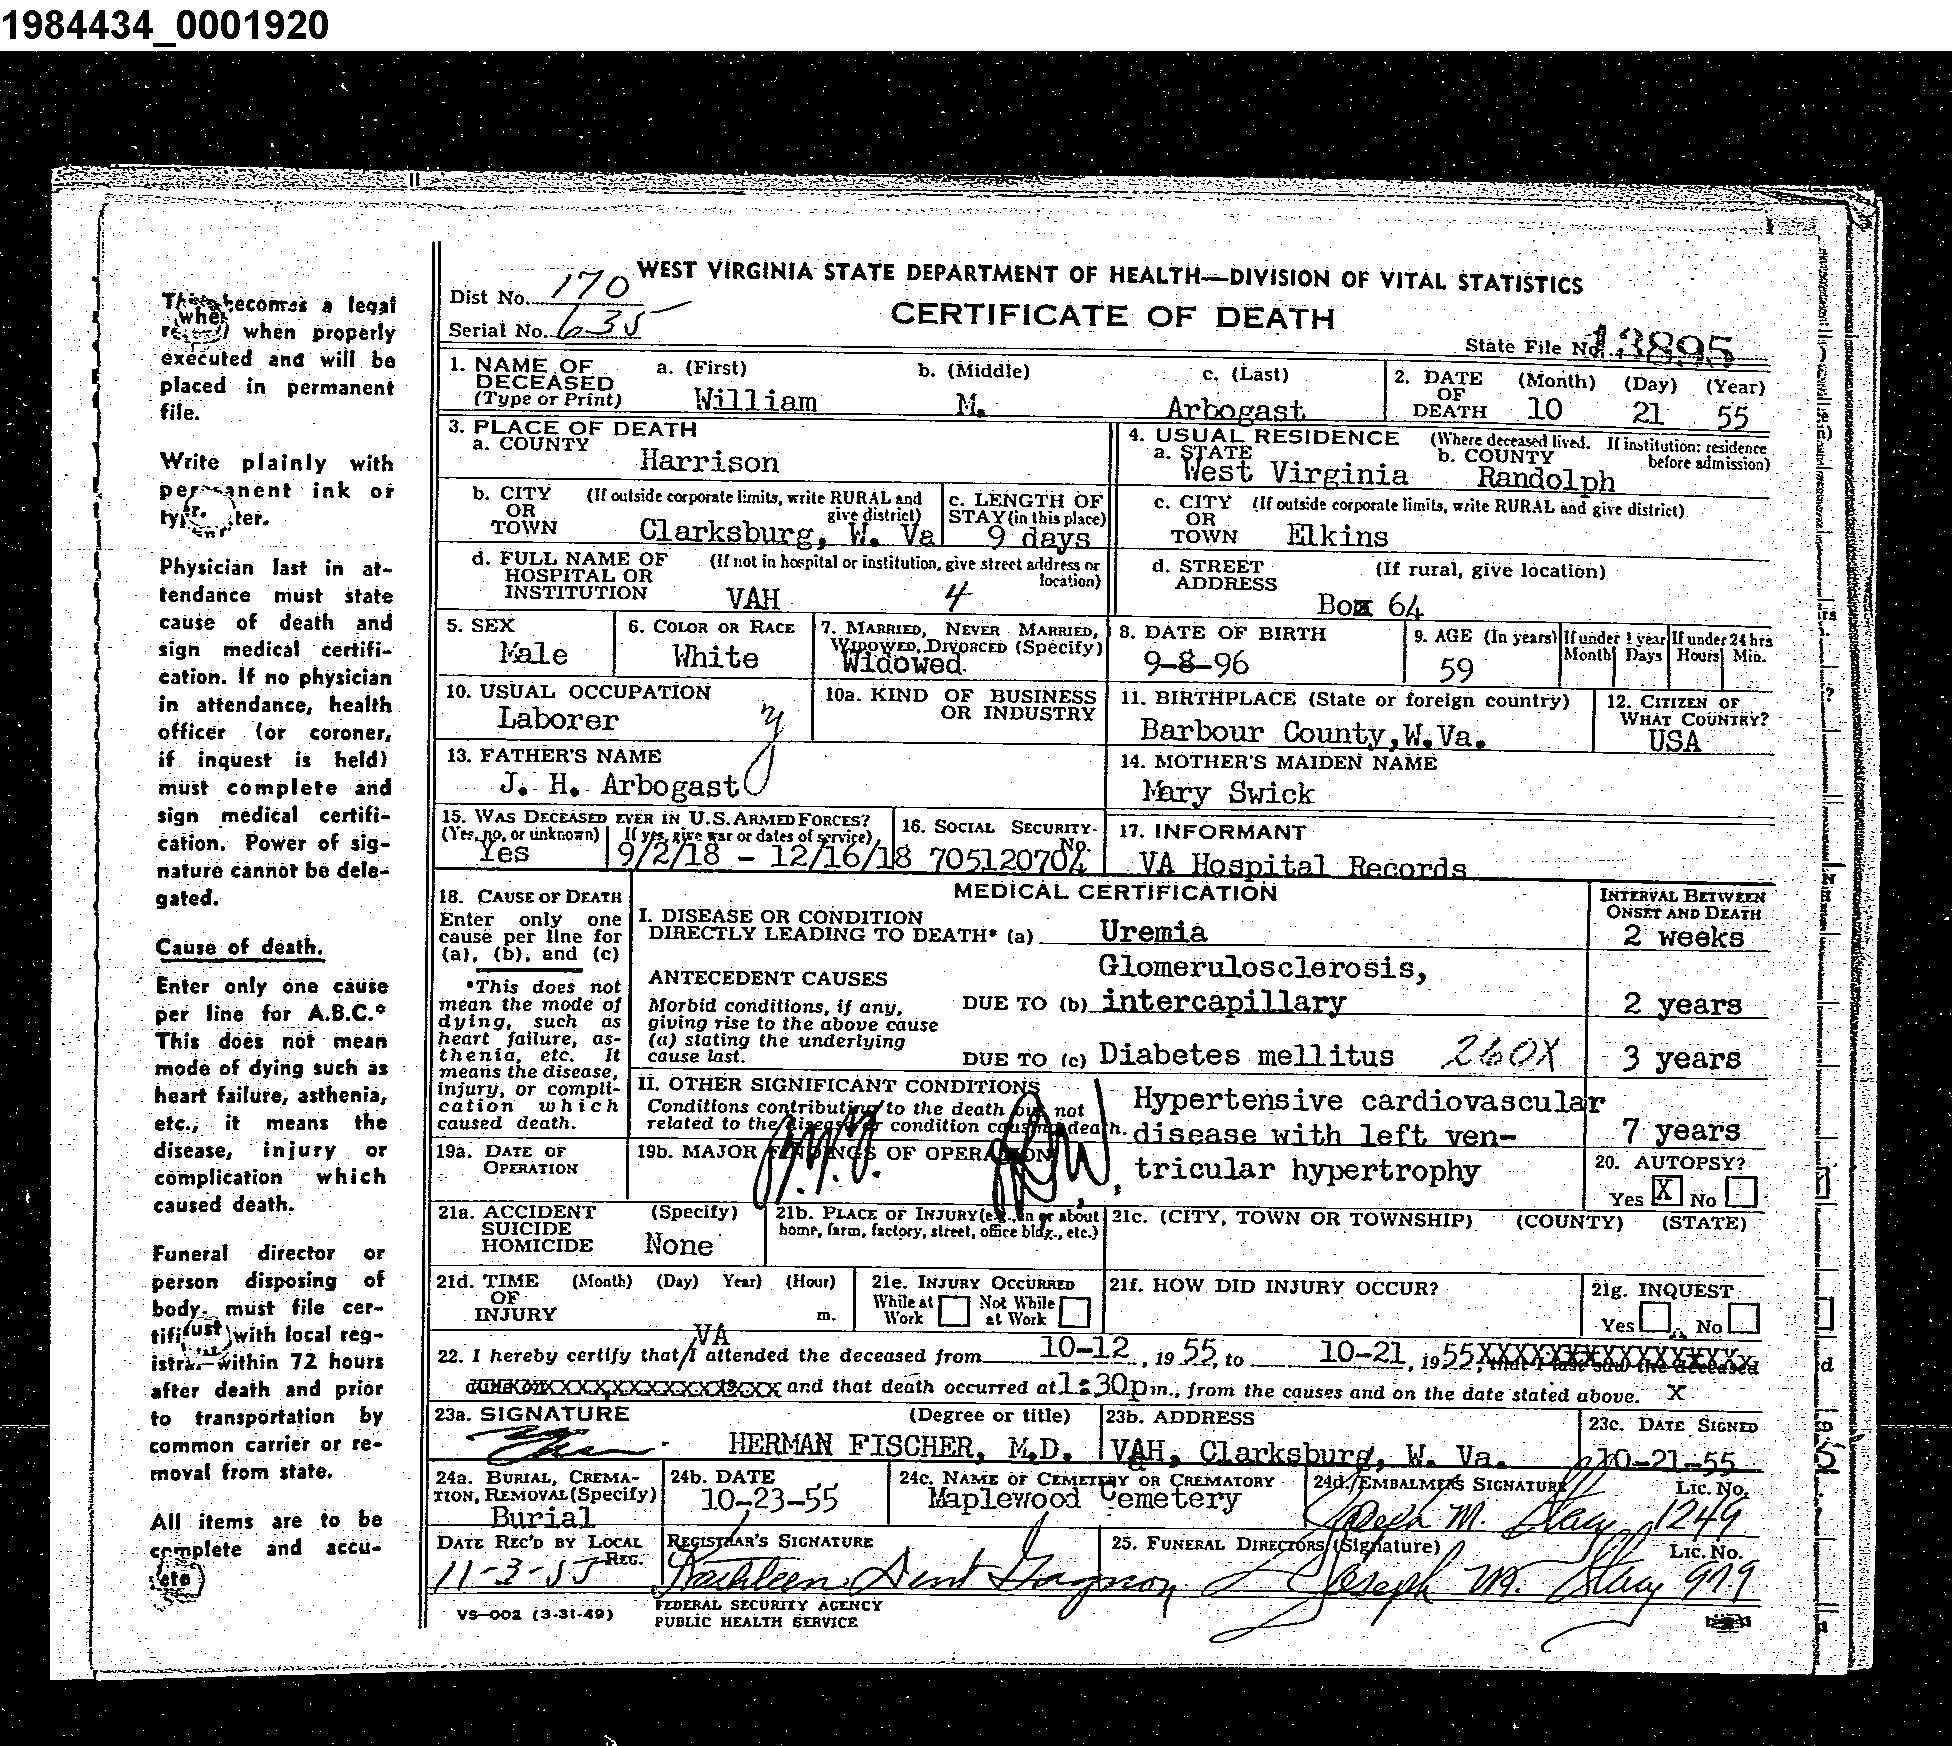 1984434_0001920
WEST VIRGINIA STATE DEPARTMENT OF HEALTH—DIVISION OF VITAL STATISTICS
CERTIFICATE OF DEATH
Dist No. 170
Serial No. 635
State File No. 13895
1. NAME OF DECEASED (Type or Print) a. (First) William b. (Middle) M. c. (Last) Arbogast
2. DATE OF DEATH (Month) (Day) (Year) 10 21 55
3. PLACE OF DEATH
a. COUNTY Harrison
b. CITY OR TOWN (If outside corporate limits, write RURAL and give district) Clarksburg, W. Va
c. LENGTH OF STAY (in this place) 9 days
d. FULL NAME OF HOSPITAL OR INSTITUTION (If not in hospital or institution, give street address or location) VAH 4
4. USUAL RESIDENCE (Where deceased lived. If institution: residence before admission)
a. STATE West Virginia b. COUNTY Randolph
c. CITY OR TOWN (If outside corporate limits, write RURAL and give district) Elkins
d. STREET ADDRESS (If rural, give location) Box 64
5. SEX Male
6. COLOR OR RACE White
7. MARRIED, NEVER MARRIED, WIDOWED, DIVORCED (Specify) Widowed
8. DATE OF BIRTH 9-8-96
9. AGE (In years) 59 If under 1 year Month Days If under 24 hrs Hours Min.
10. USUAL OCCUPATION Laborer
10a. KIND OF BUSINESS OR INDUSTRY
11. BIRTHPLACE (State or foreign country) Barbour County, W.Va.
12. CITIZEN OF WHAT COUNTRY? USA
13. FATHER'S NAME J. H. Arbogast
14. MOTHER'S MAIDEN NAME Mary Swick
15. WAS DECEASED EVER IN U.S. ARMED FORCES? (Yes, no, or unknown) Yes (If yes, give war or dates of service) 9/2/18 - 12/16/18
16. SOCIAL SECURITY No. 705120704
17. INFORMANT VA Hospital Records
MEDICAL CERTIFICATION
INTERVAL BETWEEN ONSET AND DEATH
18. CAUSE OF DEATH
Enter only one cause per line for (a), (b), and (c)
*This does not mean the mode of dying, such as heart failure, asthenia, etc. It means the disease, injury, or complication which caused death.
I. DISEASE OR CONDITION DIRECTLY LEADING TO DEATH* (a) Uremia 2 weeks
ANTECEDENT CAUSES
Morbid conditions, if any, giving rise to the above cause (a) stating the underlying cause last.
DUE TO (b) Glomerulosclerosis, intercapillary 2 years
DUE TO (c) Diabetes mellitus 260X 3 years
II. OTHER SIGNIFICANT CONDITIONS
Conditions contributing to the death but not related to the disease or condition causing death.
Hypertensive cardiovascular disease with left ventricular hypertrophy 7 years
19a. DATE OF OPERATION
19b. MAJOR FINDINGS OF OPERATION
20. AUTOPSY? Yes X No
21a. ACCIDENT SUICIDE HOMICIDE (Specify) None
21b. PLACE OF INJURY (e.g., in or about home, farm, factory, street, office bldg., etc.)
21c. (CITY, TOWN OR TOWNSHIP) (COUNTY) (STATE)
21d. TIME OF INJURY (Month) (Day) Year) (Hour) m.
21e. INJURY OCCURRED While at Work Not While at Work
21f. HOW DID INJURY OCCUR?
21g. INQUEST Yes No
22. I hereby certify that VA attended the deceased from 10-12, 1955, to 10-21, 1955
and that death occurred at 1:30p m., from the causes and on the date stated above. X
23a. SIGNATURE (Degree or title) HERMAN FISCHER, M.D.
23b. ADDRESS VAH, Clarksburg, W. Va.
23c. DATE SIGNED 10-21-55
24a. BURIAL, CREMATION, REMOVAL (Specify) Burial
24b. DATE 10-23-55
24c. NAME OF CEMETERY OR CREMATORY Maplewood Cemetery
24d. EMBALMER'S SIGNATURE Lic. No. Joseph M. Stacy 1249
DATE REC'D BY LOCAL REG. 11-3-55
REGISTRAR'S SIGNATURE Kathleen Dent
25. FUNERAL DIRECTORS (Signature) Lic. No. Joseph M. Stacy 979
VS-002 (3-31-49)
FEDERAL SECURITY AGENCY
PUBLIC HEALTH SERVICE
This becomes a legal
when properly
executed and will be
placed in permanent
file.
Write plainly with
permanent ink or
Physician last in at-
tendance must state
cause of death and
sign medical certifi-
cation. If no physician
in attendance, health
officer (or coroner,
if inquest is held)
must complete and
sign medical certifi-
cation. Power of sig-
nature cannot be dele-
gated.
Cause of death.
Enter only one cause
per line for A.B.C.*
This does not mean
mode of dying such as
heart failure, asthenia,
etc., it means the
disease, injury or
complication which
caused death.
Funeral director or
person disposing of
body must file cer-
with local reg-
within 72 hours
after death and prior
to transportation by
common carrier or re-
moval from state.
All items are to be
complete and accu-